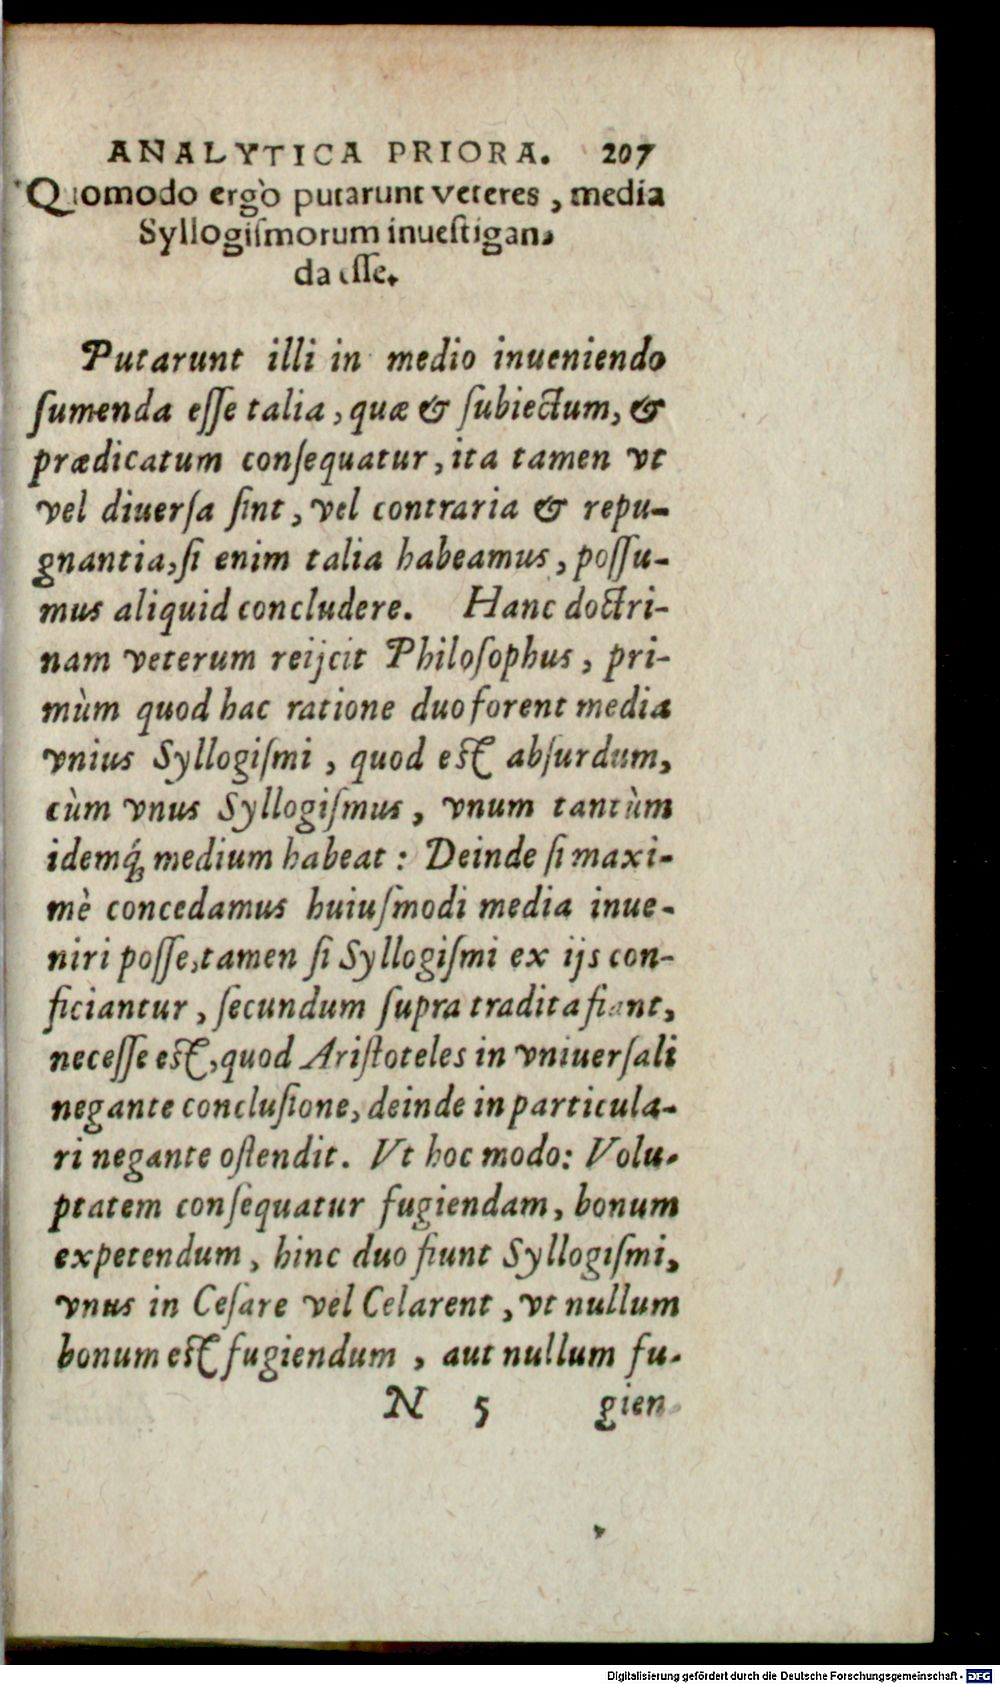 ANALYTICA PRIORA. 207
Quomodo ergò putarunt veteres, media
Syllogiſmorum inueſtigan-
da eſſe.
Putarunt illi in medio inueniendo
ſumenda eſſe talia, quæ & ſubiectum, &
prædicatum conſequatur, ita tamen vt
vel diuerſa ſint, vel contraria & repu-
gnantia, ſi enim talia habeamus, poſſu-
mus aliquid concludere. Hanc doctri-
nam veterum reijcit Philoſophus, pri-
mùm quod hac ratione duo forent media
vnius Syllogiſmi, quod eſt abſurdum,
cùm vnus Syllogiſmus, vnum tantùm
idemq́ꝫ medium habeat: Deinde ſi maxi-
mè concedamus huiuſmodi media inue-
niri poſſe, tamen ſi Syllogiſmi ex ijs con-
ficiantur, ſecundum ſupra tradita fiant,
neceſſe eſt, quod Ariſtoteles in vniuerſali
negante concluſione, deinde in particula-
ri negante oſtendit. Vt hoc modo: Volu-
ptatem conſequatur fugiendam, bonum
expetendum, hinc duo fiunt Syllogiſmi,
vnus in Ceſare vel Celarent, vt nullum
bonum eſt fugiendum, aut nullum fu-
N 5 gien-
Digitalisierung gefördert durch die Deutsche Forschungsgemeinschaft - DFG